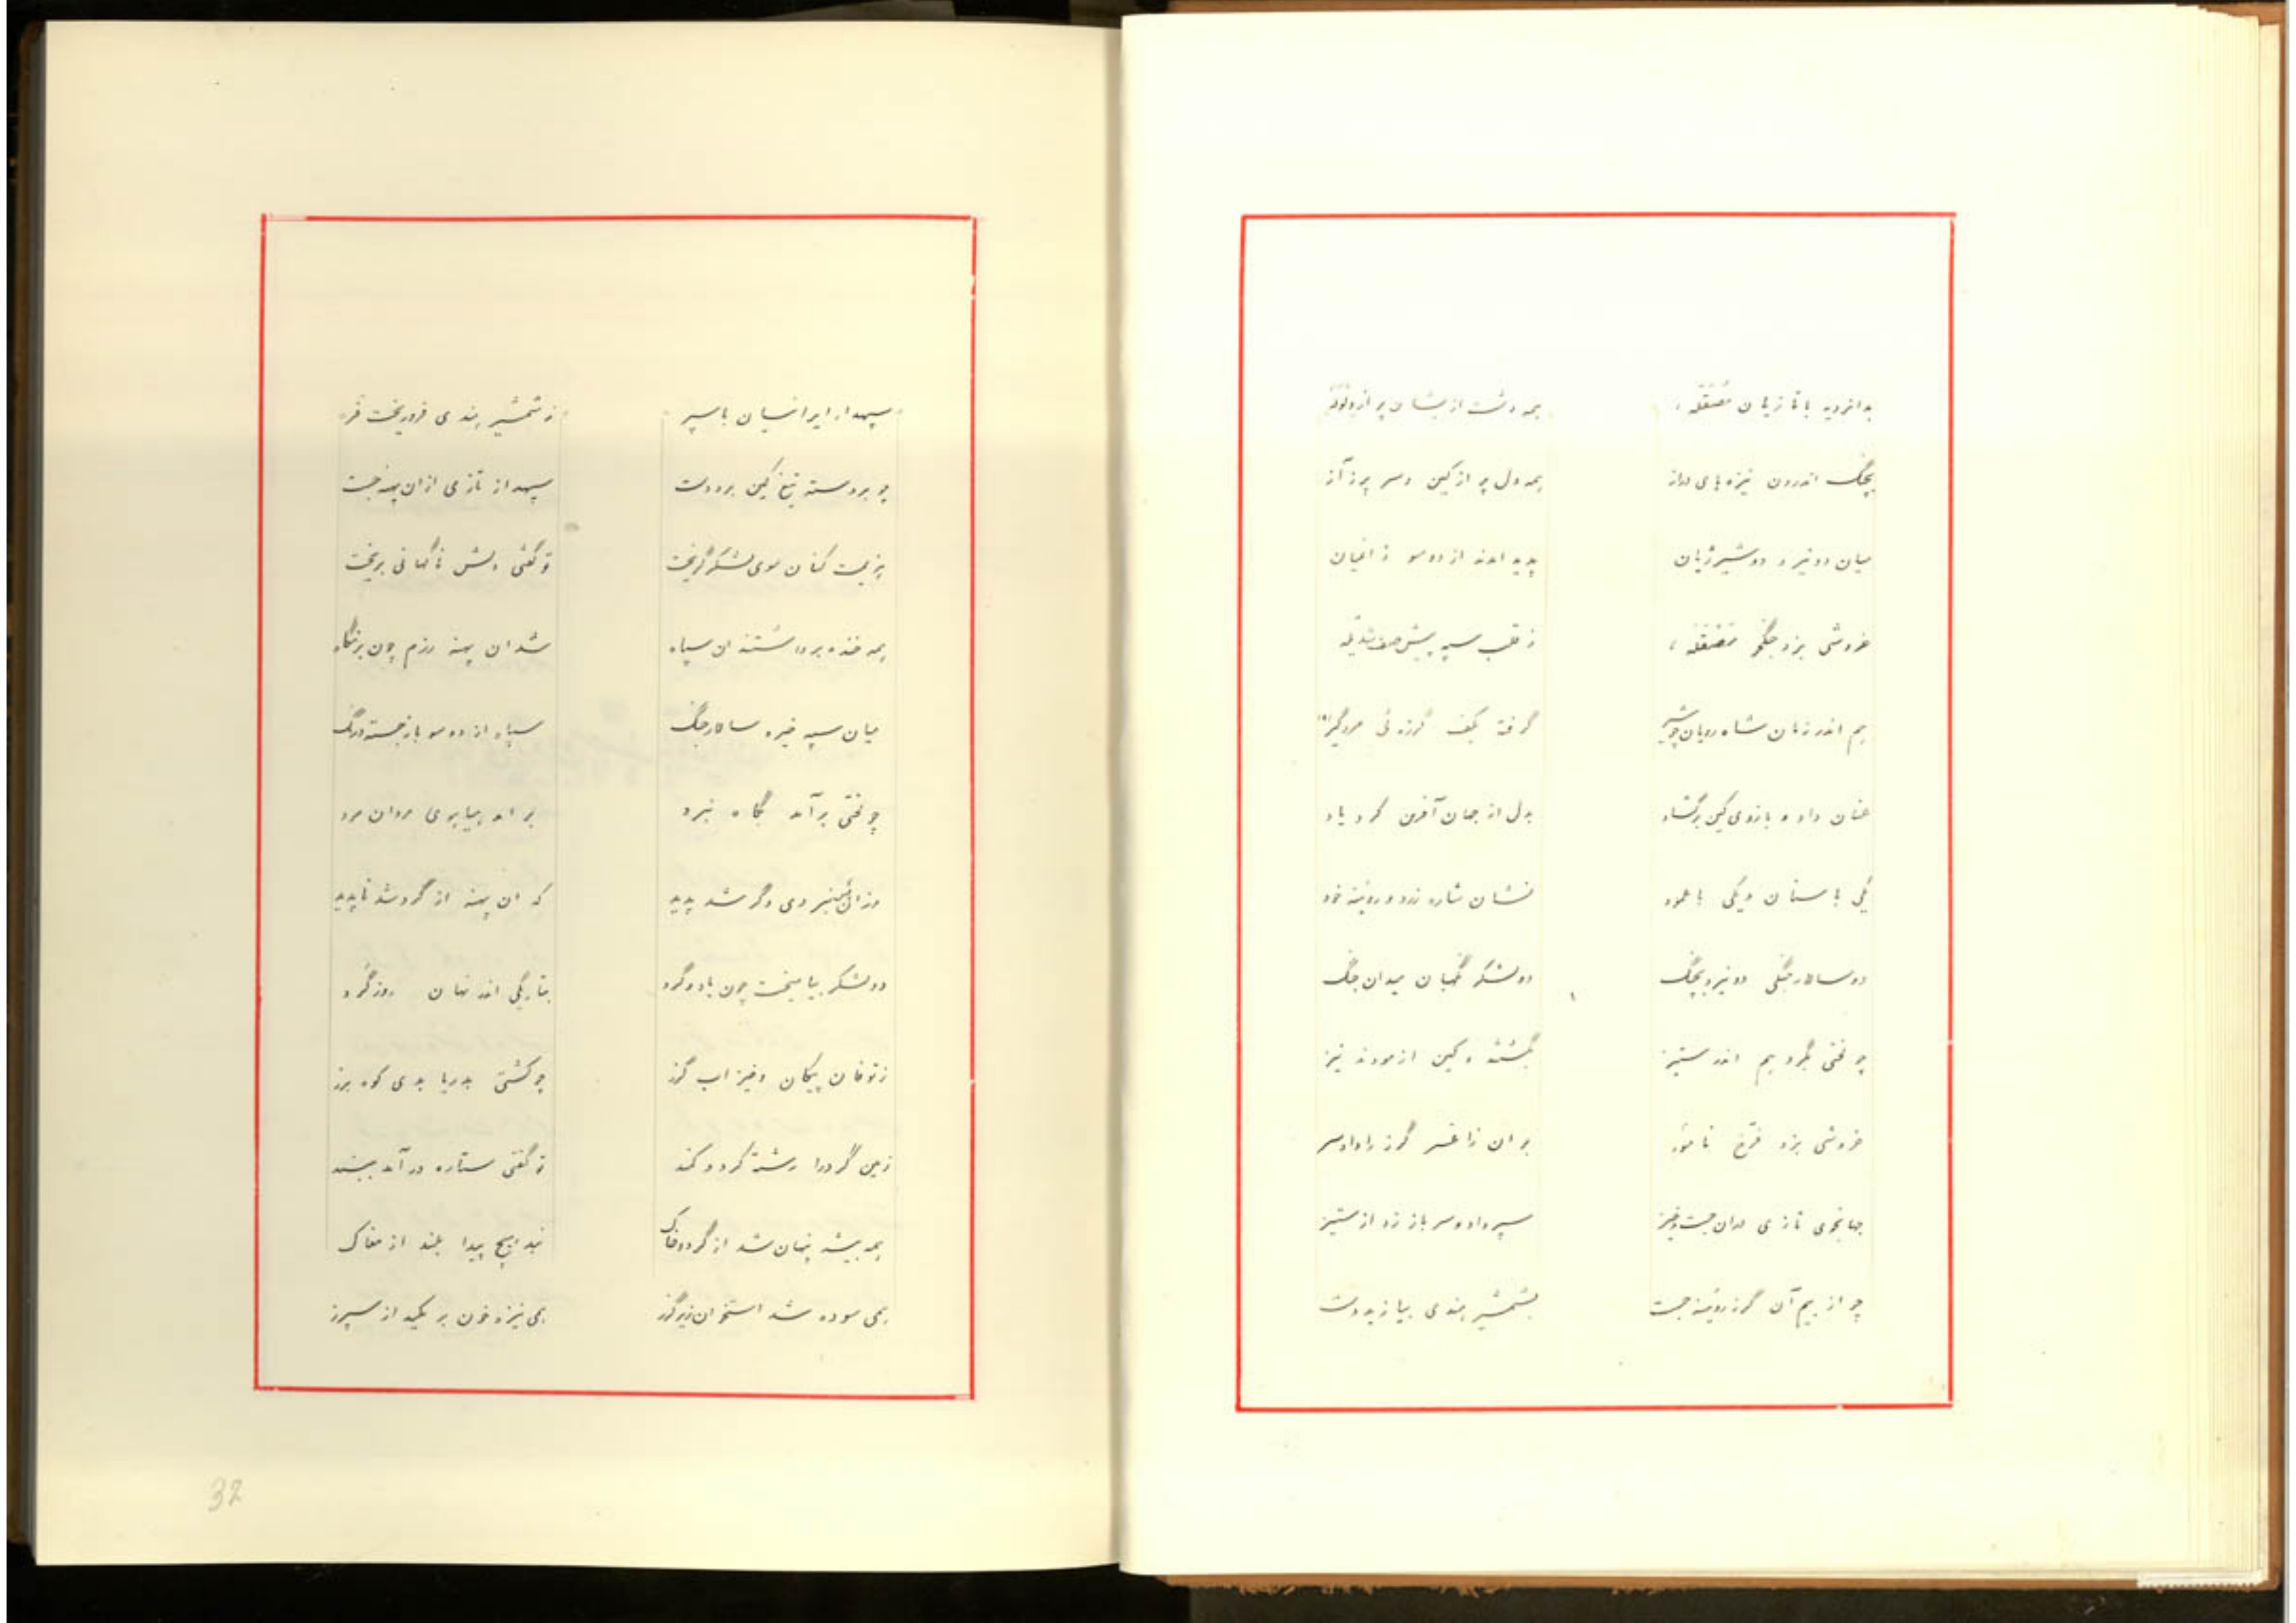 بدانرویه با تازیان مصقله همه دشت از
بچنگ اندرون نیزه‌های دراز همه دل پر از کین و سر پر ز آز
میان دو نیزه دو شیر ژیان پدید امدند از دو سو ز انمیان
خروشی بزد جنگجو مصقله ز قلب سپه پیش صف شد یله
هم اندر زمان شاه رویان چو شیر گرفته بکف گرزه‌ئی مردگیر
عنان داد و بازوی کین برگشاد بدل از جهان آفرین کرد یاد
یکی با سنان و یکی با عمود
دو سالار جنگی دو نیزه بچنگ دو لشکر نگهبان میدان جنگ
چو لختی بگرد هم اندر ستیز بگشتند و کین ازمودند نیز
خروشی بزد فرخ نامور بر ان زاغسر گرز را داد سر
جهانجوی تازی بدان جست و خیز سپر داد و سر باز زد از ستیز
چو از بیم آن گرز روئینه جست بشمشیر هندی بیازید دست
سپهدار ایرانیان با سپر ز شمشیر هندی فرو ریخت فر
چو بر دسته تیغ کین برد دست سپهدار تازی ازان پهنه جست
هزیمت کنان سوی لشکر گریخت تو گفتی دلش ناگهانی بریخت
همه خنده برداشتند ان سپاه شد ان پهنه رزم چون بزمگاه
میان سپه خیره سالار جنگ سپاه از دو سو باز جسته درنگ
چو لختی برآمد بگاه نبرد بر امد هیاهوی مردان مرد
دگر شد پدید که ان پهنه از گرد شد ناپدید
دو لشکر بیامیخت چون باد و گرد بتاریکی اندر نهان روز کرد
ز توفان پیکان و خیزاب گرز چو کشتی بدریا بدی کوه برز
زمین گرد را رشته کرد و کمند تو گفتی ستاره درآمد ببند
همه بیشه پنهان شد از گرد و خاک نبد ایچ پیدا بلند از مغاک
همی سوده شد استخوان زیر گرز همی نیزه خون بر مکید از سپرز
32